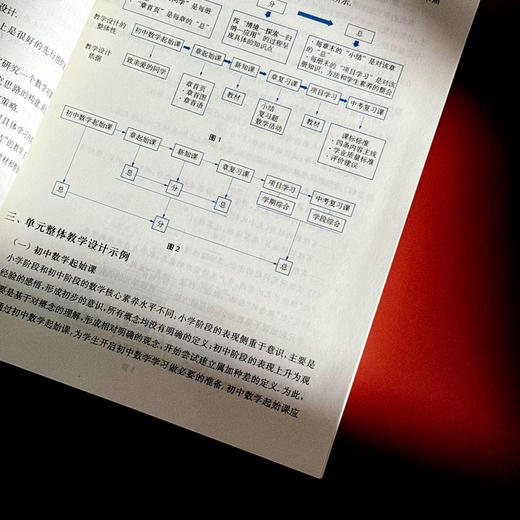 设计.
上是很好的先行组织
研究一个数学
思路的构建和
策略.
同学”是每册
“章首页”是每章的“总”
分
总
按“情境—探索—归
纳—应用”的过程呈
现具体的知识点
每章末的“小结”是对该章
每册末的“项目学习”是对该
册知识、方法和学生素养的整合
教学设计的
整体性
初中数学起始课
章起始课
新知课
章复习课
项目学习
中考复习课
教学设计
依据
致亲爱的同学
·章首页
·章首图
·章首语
教材
小结
复习题
数学活动
教材
课标标准
·四条内容主线
·学业质量标准
·评价建议
图 1
初中数学起始课
章起始课
新知课
章复习课
项目学习
中考复习课
学期综合
学段综合
总
分
总
总
分
总
图 2
三、单元整体教学设计示例
（一）初中数学起始课
小学阶段和初中阶段的数学核心素养水平不同,小学阶段的表现侧重于意识,主要是
经验的感悟,形成初步的意识,所有概念均没有明确的定义;初中阶段的表现上升为观
要是基于对概念的理解,形成相对明确的观念,开始尝试建立属加种差的定义.为此,
通过初中数学起始课,为学生开启初中数学学习做必要的准备.初中数学起始课应